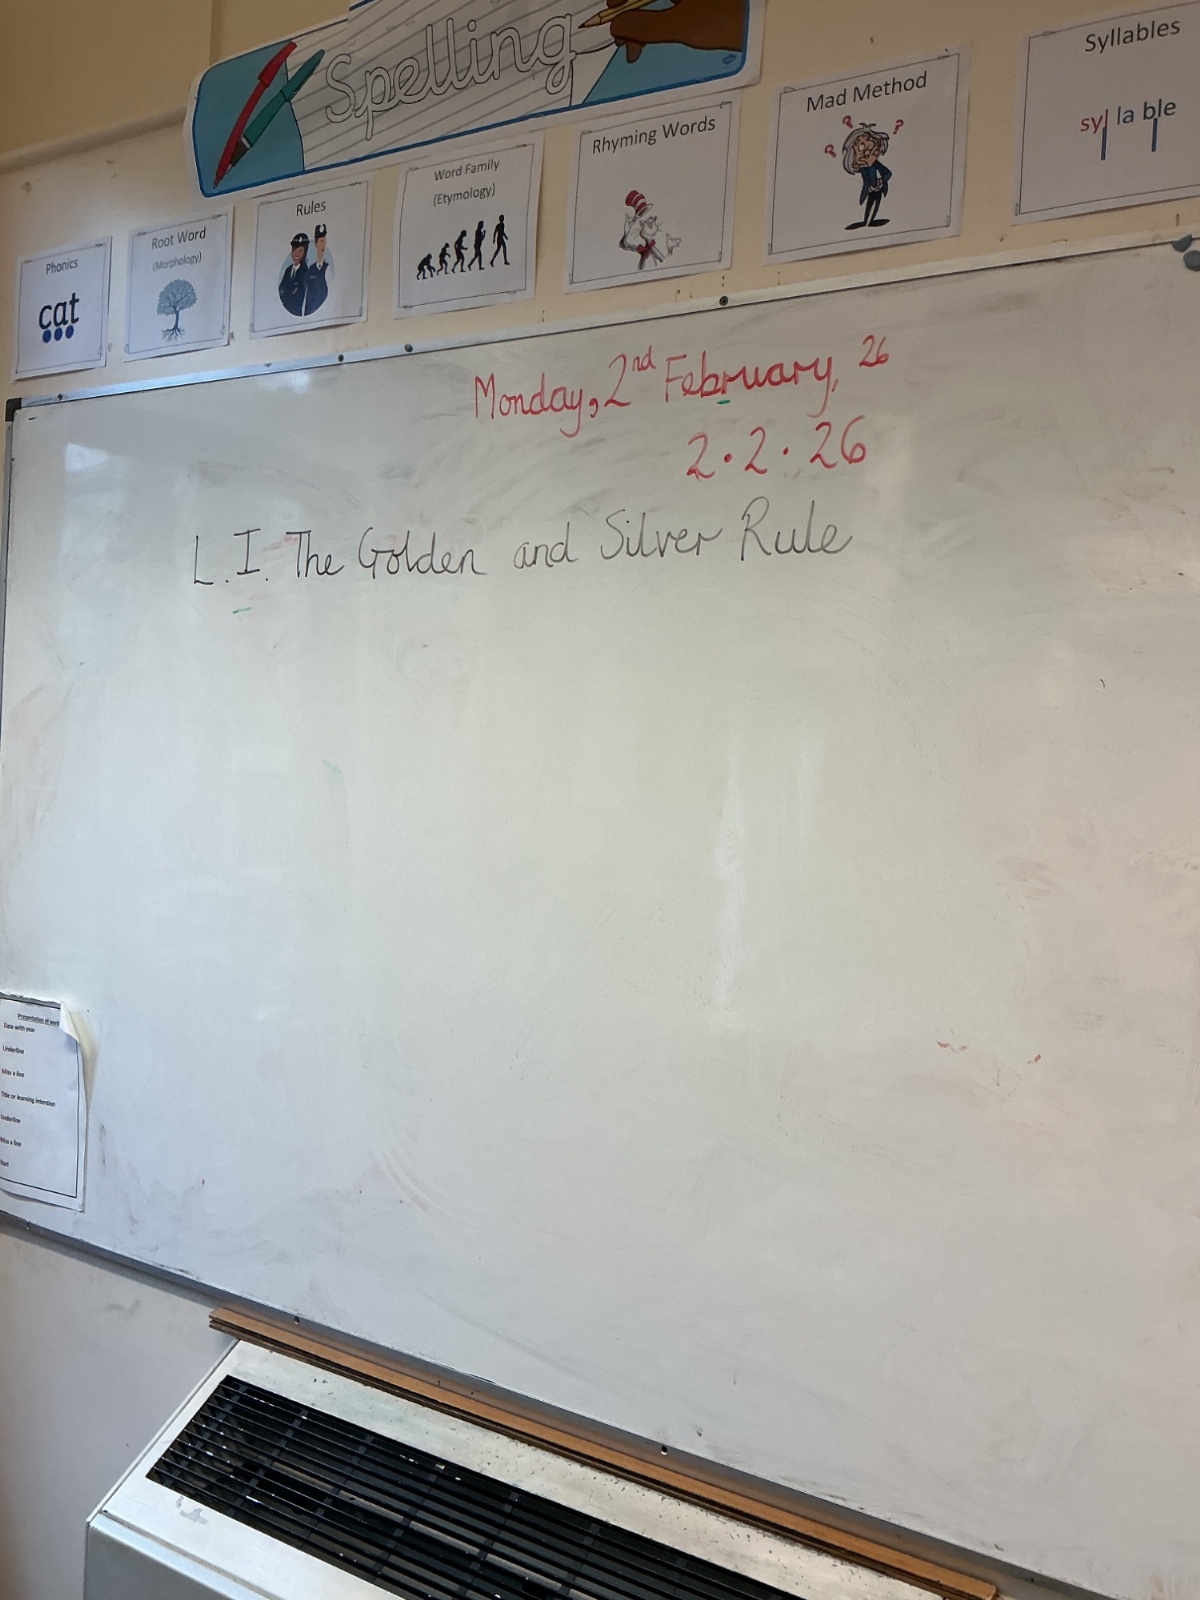 Spelling
Syllables
syl la ble
Mad Method
Rhyming Words
Word Family
(Etymology)
Rules
Root Word
(Morphology)
Phonics
cat
Monday, 2nd February, 26
2.2.26
L.I. The Golden and Silver Rule
Presentation of work
Date with year
Underline
Miss a line
Title or learning intention
Underline
Miss a line
Start